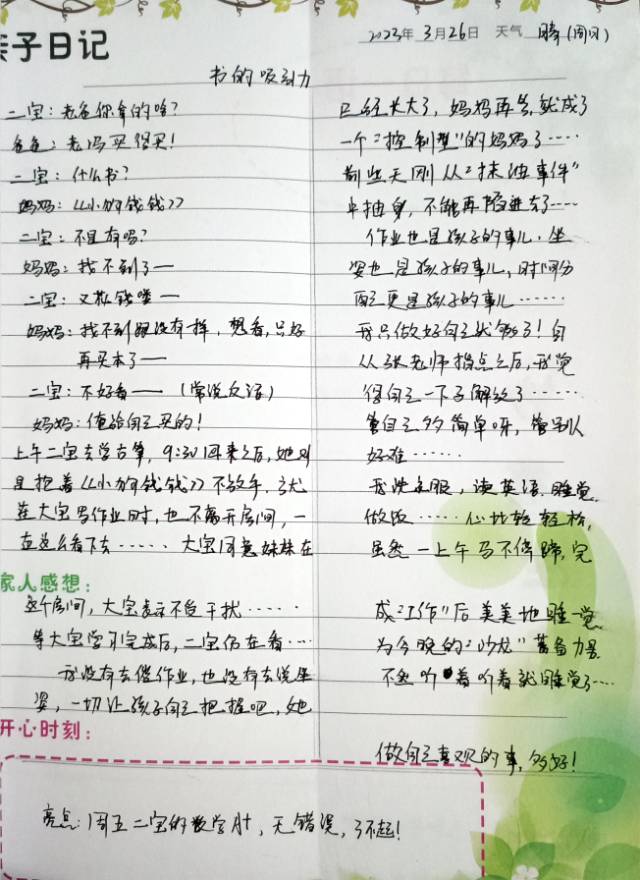 亲子日记
2023年3月26日 天气 晴(周日)
书的吸引力
二宝：老爸你拿的啥？
爸爸：老妈买得买！
二宝：什么书？
妈妈：《小狗钱钱》
二宝：不是有吗？
妈妈：找不到了——
二宝：又败钱喽——
妈妈：找不到跟没有样，想看，只好
再买本了——
二宝：不好看——（常说反话）
妈妈：俺给自己买的！
上午二宝去学古筝，9:30回来之后，她则
是抱着《小狗钱钱》不放手，就
在大宝写作业时，也不离开房间，一
在这么看下去……大宝同意妹妹在
家人感想：
这个房间，大宝表示不受干扰……
等大宝学习完成后，二宝仍在看…
我没有去催作业，也没有去说坐
姿，一切让孩子自己把握吧，她
已经长大了，妈妈再管，就成了
一个“控制型”的妈妈了……
前些天刚从“抹油事件”
中抽身，不能再陷进去了……
作业也是孩子的事儿，坐
姿也是孩子的事儿，时间分
配更是孩子的事儿……
我只做好自己就够了！自
从张老师指点之后，我觉
得自己一下子解放了……
管自己多简单呀，管别人
好难……
我洗衣服，读英语，睡觉，
做饭……心比较轻松，
虽然一上午马不停蹄，完
成“工作”后美美地睡一觉，
为今晚的“沙龙”蓄备力量，
不致听着听着就睡觉了……
做自己喜欢的事，多好！
开心时刻：
亮点：周五二宝的数学小卡，无错误，了不起！